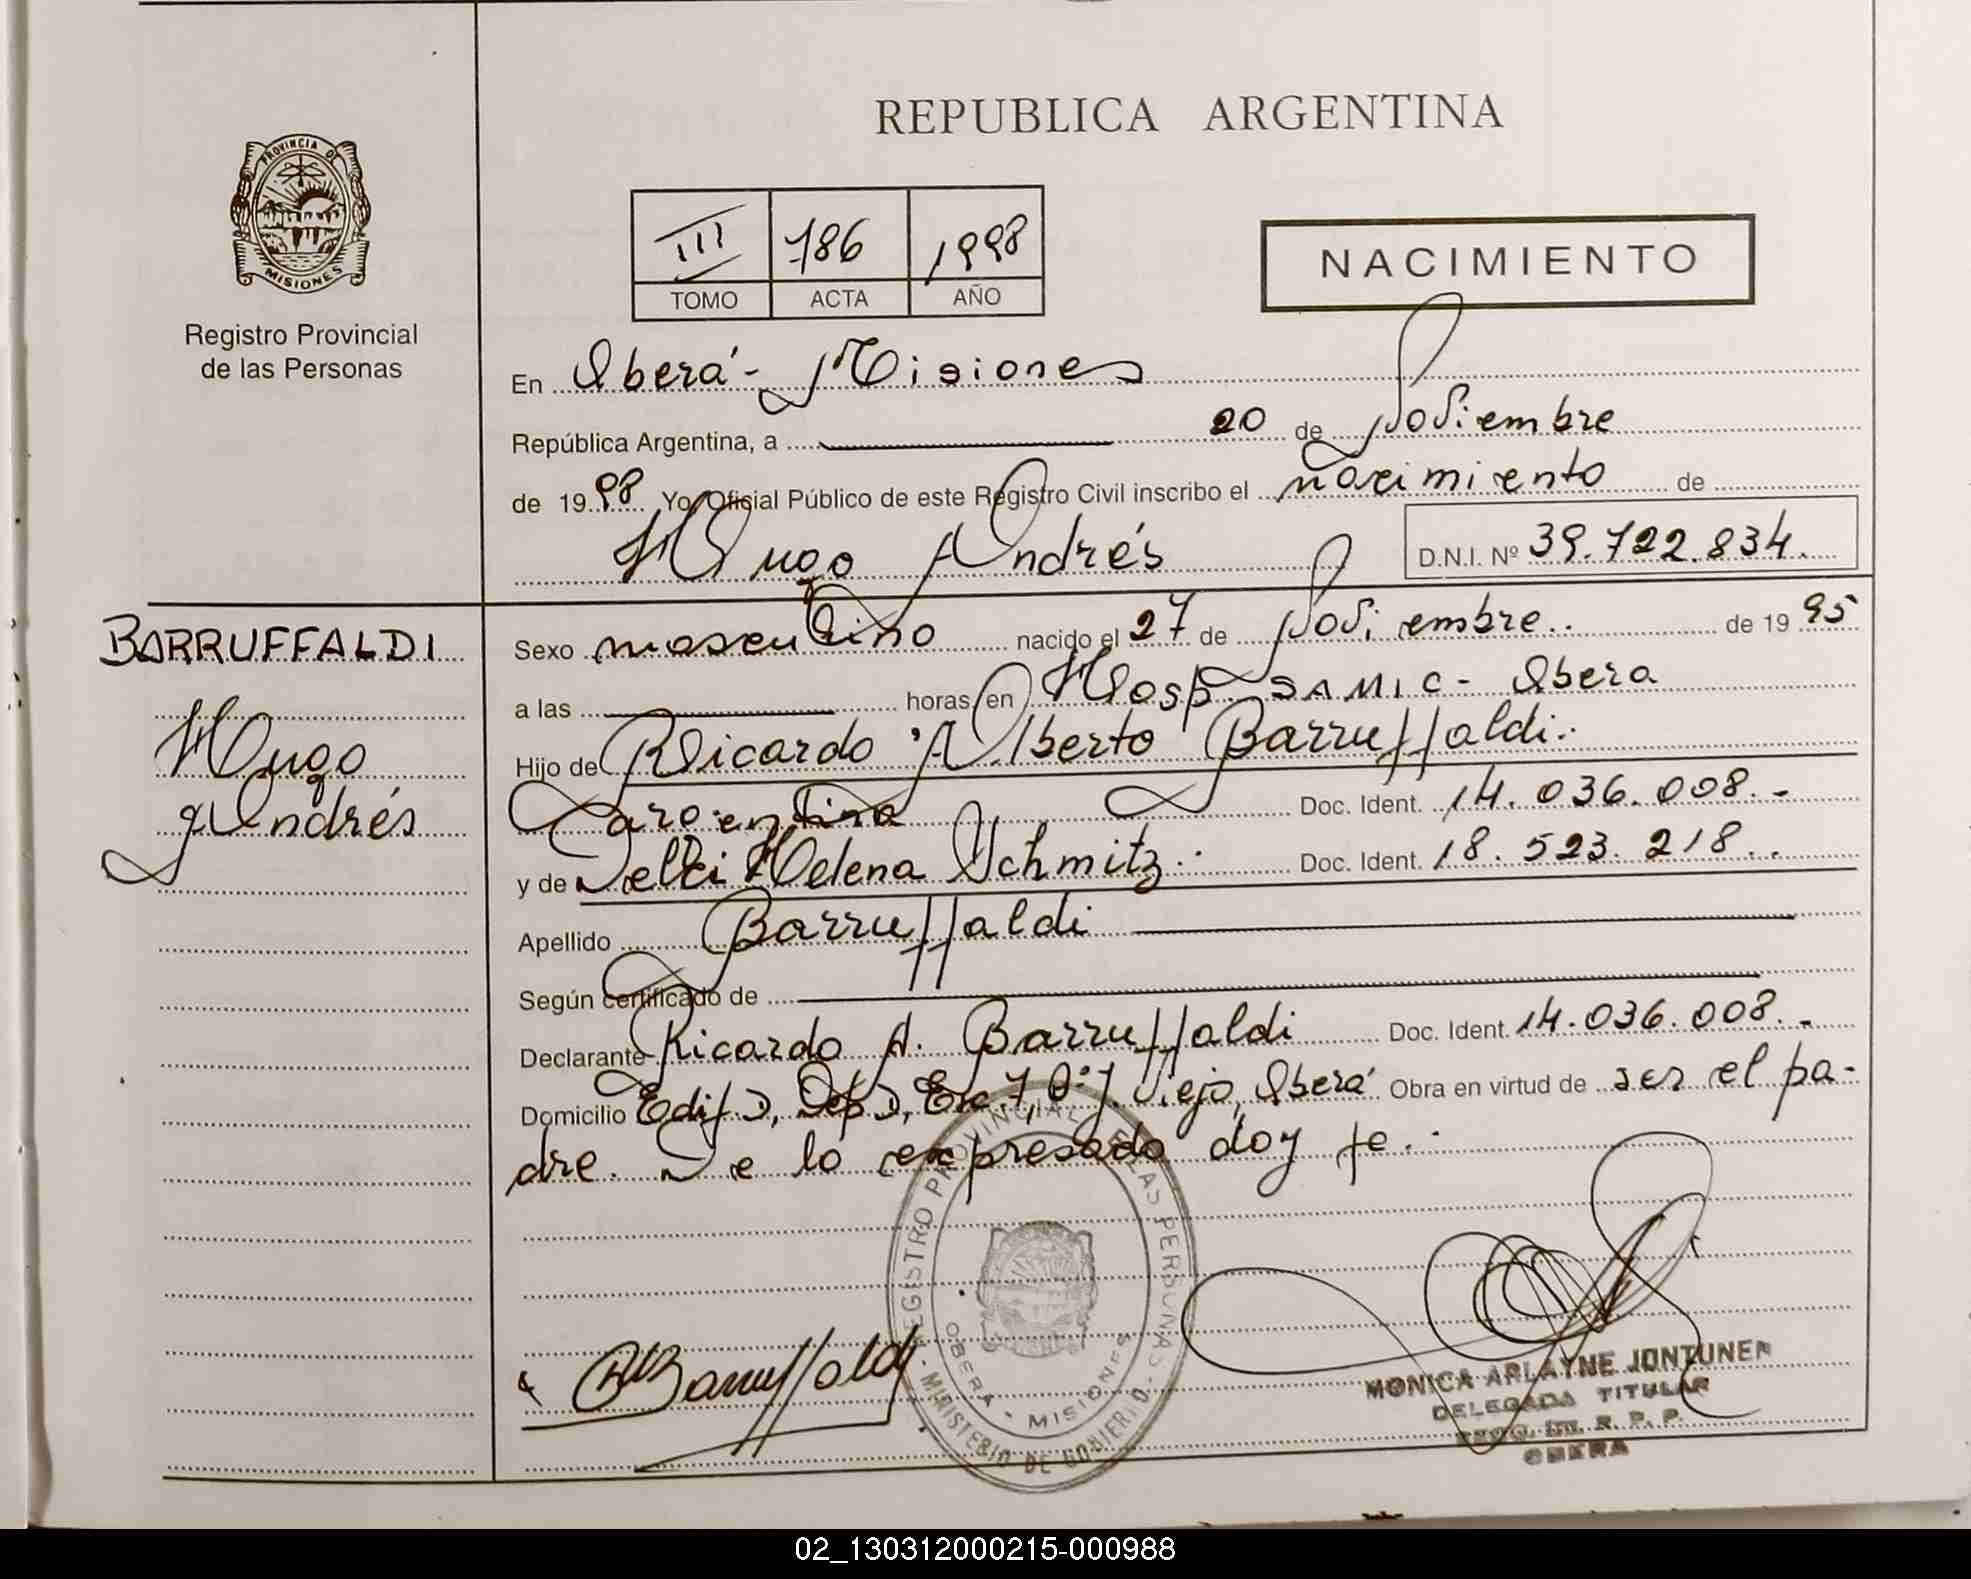 REPUBLICA ARGENTINA
PROVINCIA DE
MISIONES
Registro Provincial
de las Personas
III 786 1998
TOMO ACTA AÑO
NACIMIENTO
En Oberá - Misiones
República Argentina, a 20 de Noviembre
de 1998 Yo Oficial Público de este Registro Civil inscribo el nacimiento de
Hugo Andrés D.N.I. Nº 39.722.834.
BARRUFFALDI
Hugo
Andrés
Sexo masculino nacido el 27 de Noviembre.. de 1995
a las horas en Hosp SAMIC - Oberá
Hijo de Ricardo Alberto Barruffaldi.
argentina Doc. Ident. 14.036.008.-
y de Helena Schmitz.. Doc. Ident. 18.523.218..
Apellido Barruffaldi
Según certificado de
Declarante Ricardo A. Barruffaldi Doc. Ident. 14.036.008.-
Domicilio Edif D, Dep D, Esc 7, Bº J. Viejo, Oberá Obra en virtud de ser el pa-
dre. De lo expresado doy fe.-
REGISTRO PROVINCIAL DE LAS PERSONAS - MINISTERIO DE GOBIERNO -
OBERA - MISIONES
Barruffaldi
MONICA ARLAYNE JONTUNEN
DELEGADA TITULAR
R. P. P.
OBERA
02_130312000215-000988